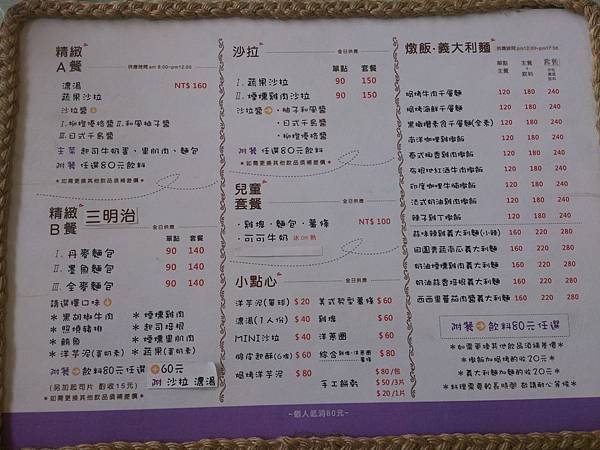 精緻
A餐
供應時間 am 9:00~pm12:00
濃湯 NT$ 160
蔬果沙拉
沙拉醬
I.柳橙優格醬 II.和風柚子醬
III.日式千島醬
主菜 起司牛奶蛋、里肌肉、麵包
附餐 任選80元飲料
*如需更換其他飲品須補差價*
精緻
B餐 三明治
全日供應
單點 套餐
I. 丹麥麵包 90 140
II. 墨魚麵包 90 140
III. 全麥麵包 90 140
請選擇口味
*黑胡椒牛肉 *煙燻雞肉
*照燒豬排 *起司培根
*鮪魚 *煙燻里肌肉
*洋芋泥(蛋奶素) *蔬果(蛋奶素)
附餐 飲料80元任選 +60元
附 沙拉 濃湯
(另加起司片 酌收15元)
*如需更換其他飲品須補差價*
沙拉
全日供應
單點 套餐
I. 蔬果沙拉 90 150
II. 煙燻雞肉沙拉 90 150
沙拉醬 ·柚子和風醬
·日式千島醬
·柳橙優格醬
附餐 任選80元飲料
*如需更換其他飲品須補差價*
兒童
套餐
全日供應
·雞塊·麵包·薯條 NT$ 100
·可可牛奶 冰 OR 熱
小點心
全日供應
洋芋泥(單球) $ 20
濃湯(1人份) $ 40
MINI沙拉 $ 40
脆皮起酥(6份) $ 60
焗烤洋芋泥 $ 80
美式契型薯條 $ 60
雞塊 $ 60
洋蔥圈 $ 60
綜合 雞塊·洋蔥圈 薯條 $ 80
手工餅乾 $ 80/包
$ 50/3片
$ 20/1片
燉飯·義大利麵
供應時間 pm12:00~pm17:30
單點 主餐 主餐 + 飲料 套餐
焗烤牛肉千層麵 120 180 240
焗烤海鮮千層麵 120 180 240
黑椒猴菇素食千層麵(全素) 120 180 240
南洋咖哩雞燉飯 120 180 240
泰式椒香雞肉燉飯 120 180 240
布根地紅酒牛肉燉飯 120 180 240
印度咖哩牛腩燉飯 120 180 240
法式奶油雞肉燉飯 120 180 240
辣子雞丁燉飯 120 180 240
蒜味辣雞義大利麵(小辣) 160 220 280
田園青蔬南瓜義大利麵 160 220 280
奶油燻雞義大利麵 160 220 280
奶油蒜香培根義大利麵 160 220 280
西西里蕃茄肉醬義大利麵 160 220 280
附餐 飲料80元任選
*如需更換其他飲品須補差價*
*燉飯加焗烤的收20元*
*義大利麵加麵的收20元*
*料理需要較長時間 敬請耐心等候*
~個人低消80元~